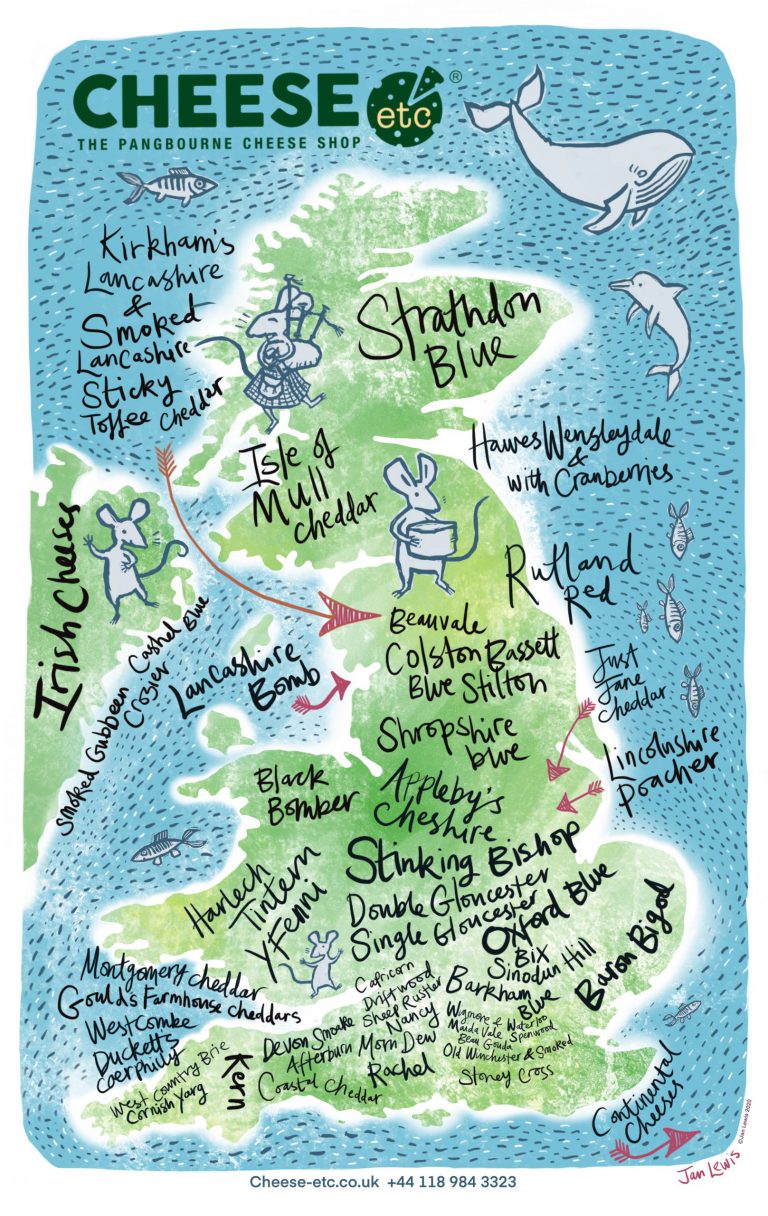 CHEESE etc ®
THE PANGBOURNE CHEESE SHOP
Kirkham's
Lancashire
&
Smoked
Lancashire
Sticky
Toffee Cheddar
Strathdon
Blue
Isle of
Mull
Cheddar
Hawes Wensleydale
&
with Cranberries
Irish Cheeses
Cashel Blue
Crozier
Smoked Gubbeen
Rutland
Red
Beauvale
Colston Bassett
Blue Stilton
Lancashire
Bomb
Just
Jane
Cheddar
Shropshire
blue
Lincolnshire
Poacher
Black
Bomber
Appleby's
Cheshire
Stinking Bishop
Harlech
Tintern
Y Fenni
Double Gloucester
Single Gloucester
Oxford Blue
Bix
Sinodun Hill
Baron Bigod
Montgomery Cheddar
Gould's Farmhouse cheddars
Westcombe
Ducketts
Caerphilly
West Country Brie
Cornish Yarg
Kern
Capricorn
Driftwood
Sheep Rustler
Nancy
Devon Smoake
Afterburn
Morn Dew
Rachel
Coastal Cheddar
Barkham
Blue
Wigmore & Waterloo
Maida Vale Spenwood
Beau Gouda
Old Winchester & Smoked
Stoney Cross
Continental
Cheeses
Jan Lewis
© Jan Lewis 2020
Cheese-etc.co.uk +44 118 984 3323